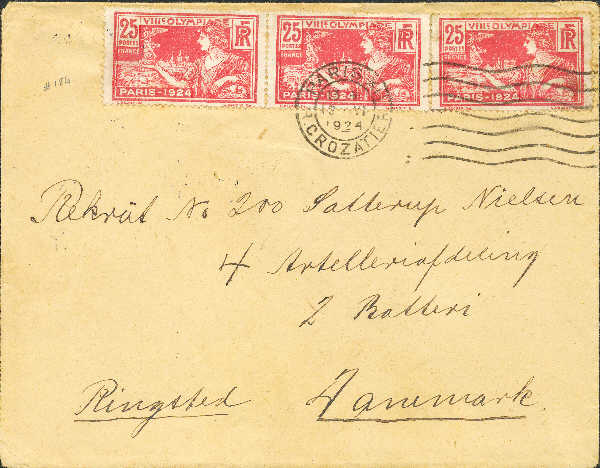 25 VIIIE OLYMPIADE RF
POSTES
FRANCE
PARIS-1924
25 VIIIE OLYMPIADE RF
POSTES
FRANCE
PARIS-1924
25 VIIIE OLYMPIADE RF
POSTES
FRANCE
PARIS-1924
PARIS
VI
1924
R. CROZATIER
#184
Rekrut No 200 Satterup Nielsen
4 Artelleriafdeling
2 Batteri
Ringsted Danemark